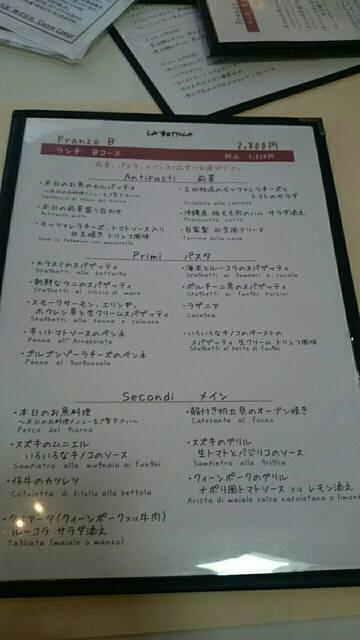 LA BETTOLA
Pranzo B 2,800円
ランチ Bコース 税込
前菜、パスタ、メインを1品ずつお選び下さい
Antipasti 前菜
・本日のお魚のカルパッチョ
〜本日のお料理メニューをご覧下さい〜
Carpaccio di Pesce del giorno
・本日の前菜盛り合わせ
Antipasto misto
・モッツァレラチーズ、トマトソース入り
目玉焼き トリュフ風味
Uova in tegamino con mozzarella
モッツァレラチーズと
トマトのサラダ
Insalata alla caprese
・沖縄産 豚もも肉のハム サラダ添え
Prosciutto cotto
・自家製 田舎風テリーヌ
Terrina della casa
Primi パスタ
・カラスミのスパゲッティ
Spaghetti alla bottarga
・新鮮なウニのスパゲッティ
Spaghetti al riccio di mare
・スモークサーモン、エリンギ、
ホウレン草と生クリームスパゲッティ
Spaghetti alla panna e salmone
・辛いトマトソースのペンネ
Penne all'Arrabbiata
・ゴルゴンゾーラチーズのペンネ
Penne al gorgonzola
・海老とルーコラのスパゲッティ
Spaghetti ai gamberi rucola
・ポルチーニ茸のスパゲッティ
Spaghetti ai funghi porcini
・ラザニア
Lasagna
・いろいろなキノコのペーストの
スパゲッティ 生クリーム トリュフ風味
Spaghetti al pesto di funghi
Secondi メイン
・本日のお魚料理
〜本日のお料理メニューをご覧下さい〜
Pesce del giorno
・スズキのムニエル
いろいろなキノコのソース
Sampietro alla mugnaia ai funghi
・仔牛のカツレツ
Cotoletta di vitello alla bettola
・タリアータ(クィーンポーク又は牛肉)
ルーコラ サラダ添え
Tagliata (maiale o manzo)
・殻付き帆立貝のオーブン焼き
Capesante al forno
・スズキのグリル
生トマトとバジリコのソース
Sampietro alla griglia
・クィーンポークのグリル
ナポリ風トマトソース 又は レモン添え
Arista di maiale salsa napoletana o limone